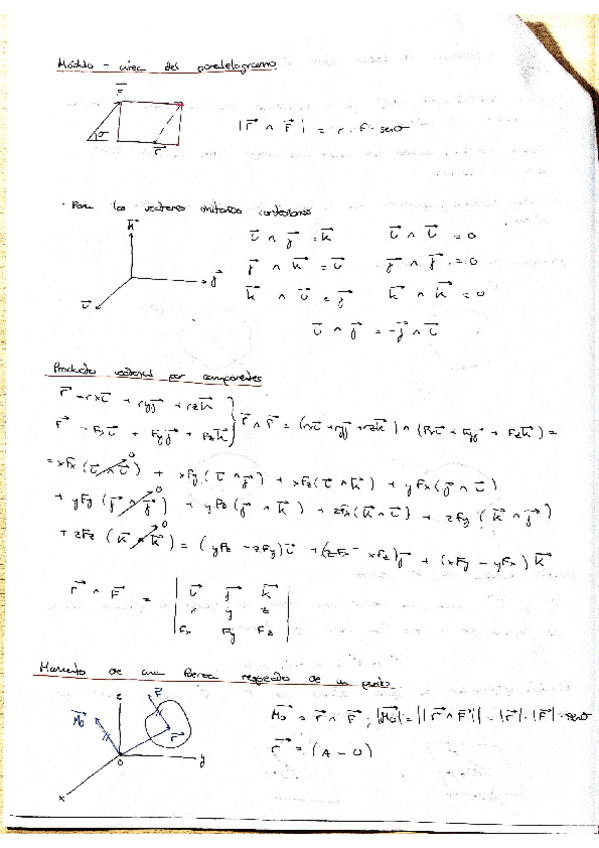 Módulo = área del paralelogramo
F⃗
σ
r⃗
|r⃗ ∧ F⃗| = r · F · senσ
· Para los vectores unitarios cartesianos
k⃗
j⃗
i⃗
i⃗ ∧ j⃗ = k⃗   i⃗ ∧ i⃗ = 0
j⃗ ∧ k⃗ = i⃗   j⃗ ∧ j⃗ = 0
k⃗ ∧ i⃗ = j⃗   k⃗ ∧ k⃗ = 0
i⃗ ∧ j⃗ = -j⃗ ∧ i⃗
Producto vectorial por componentes
r⃗ = rxi⃗ + ryj⃗ + rzk⃗
F⃗ = Fxi⃗ + Fyj⃗ + Fzk⃗ } r⃗ ∧ F⃗ = (rxi⃗ + ryj⃗ + rzk⃗) ∧ (Fxi⃗ + Fyj⃗ + Fzk⃗) =
= xFx (i⃗ ∧ i⃗) 0 + xFy (i⃗ ∧ j⃗) + xFz (i⃗ ∧ k⃗) + yFx (j⃗ ∧ i⃗)
+ yFy (j⃗ ∧ j⃗) 0 + yFz (j⃗ ∧ k⃗) + zFx (k⃗ ∧ i⃗) + zFy (k⃗ ∧ j⃗)
+ zFz (k⃗ ∧ k⃗) 0 = (yFz - zFy)i⃗ + (zFx - xFz)j⃗ + (xFy - yFx)k⃗
r⃗ ∧ F⃗ = | i⃗ j⃗ k⃗ |
x y z
Fx Fy Fz
Momento de una fuerza respecto de un punto
z
F⃗
M⃗o
r⃗
O
y
x
M⃗o = r⃗ ∧ F⃗ ; |M⃗o| = ||r⃗ ∧ F⃗|| = |r⃗| · |F⃗| · senσ
r⃗ = (A - O)